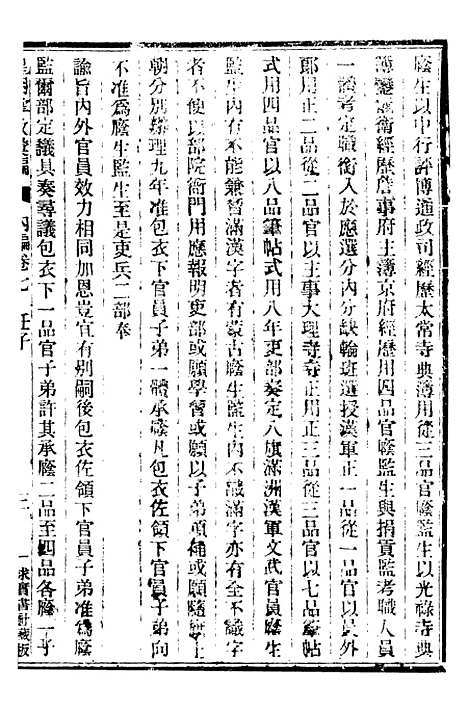 廕生以中行評博通政司經歷太常寺典簿用從三品官廕生以光祿寺典
簿鑾儀衛經歷詹事府主簿京府經歷用四品官廕監生與捐貢監考職人員
一體考定職銜入於應選分內分缺輪班選授漢軍正一品從一品官以員外
郎用正二品從二品官以主事大理寺寺正用正三品從三品官以七品筆帖
式用四品官以八品筆帖式用八年吏部奏定八旗滿洲漢軍文武官員廕生
監生內有不能兼習滿漢字者有蒙古廕生監生內不識滿字亦有全不識字
者不便以部院衙門用應報明吏部或願學習或願以子弟頂補或願隨旗上
朝分別辦理九年准包衣下官員子弟一體承廕凡包衣佐領下官員子弟向
不准為廕生監生至是吏兵二部奉
諭旨內外官員效力相同加恩豈宜有別嗣後包衣佐領下官員子弟准為廕
監爾部定議具奏尋議包衣下一品官子弟許其承廕二品至四品各廕一子
內編卷七 任子
求實書社藏板